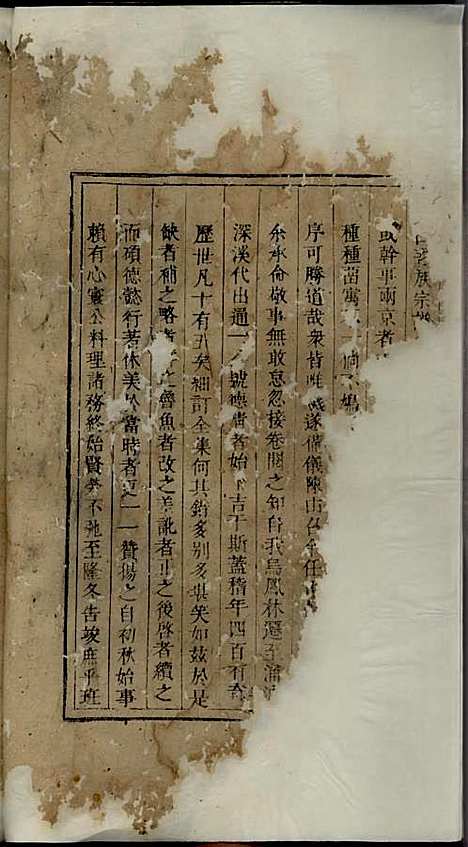 族宗
或幹事兩京者
種種苗裔 一 倘 鳩
序可勝道哉衆皆唯 遂備儀陳由 余任
余承命敬事無敢怠忽按卷閱之知自我烏鳳林遷 浦
深溪代出通一公號德 者始卜吉于斯蓋稽年四百有奇
歷世凡十有五矣細訂全集何其錯多別多堪笑如兹於是
缺者補之略者 之魯魚者改之差訛者正之後啓者續之
而碩德懿行若休美於當時者更一一贊揚之自初秋始事
賴有心實公料理諸務終始賢勞不弛至隆冬告竣庶乎班